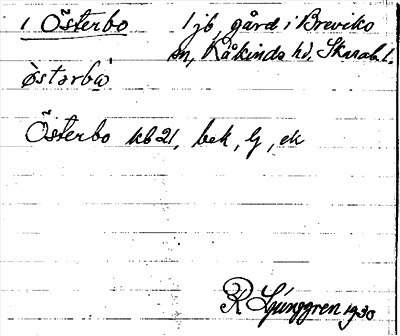 1 Österbo 1 jb, gård i Breviks
sn, Kåkinds hd, Skarab. l.
östarbo
Österbo kb 21, bek, G, ek
R Ljunggren 1930